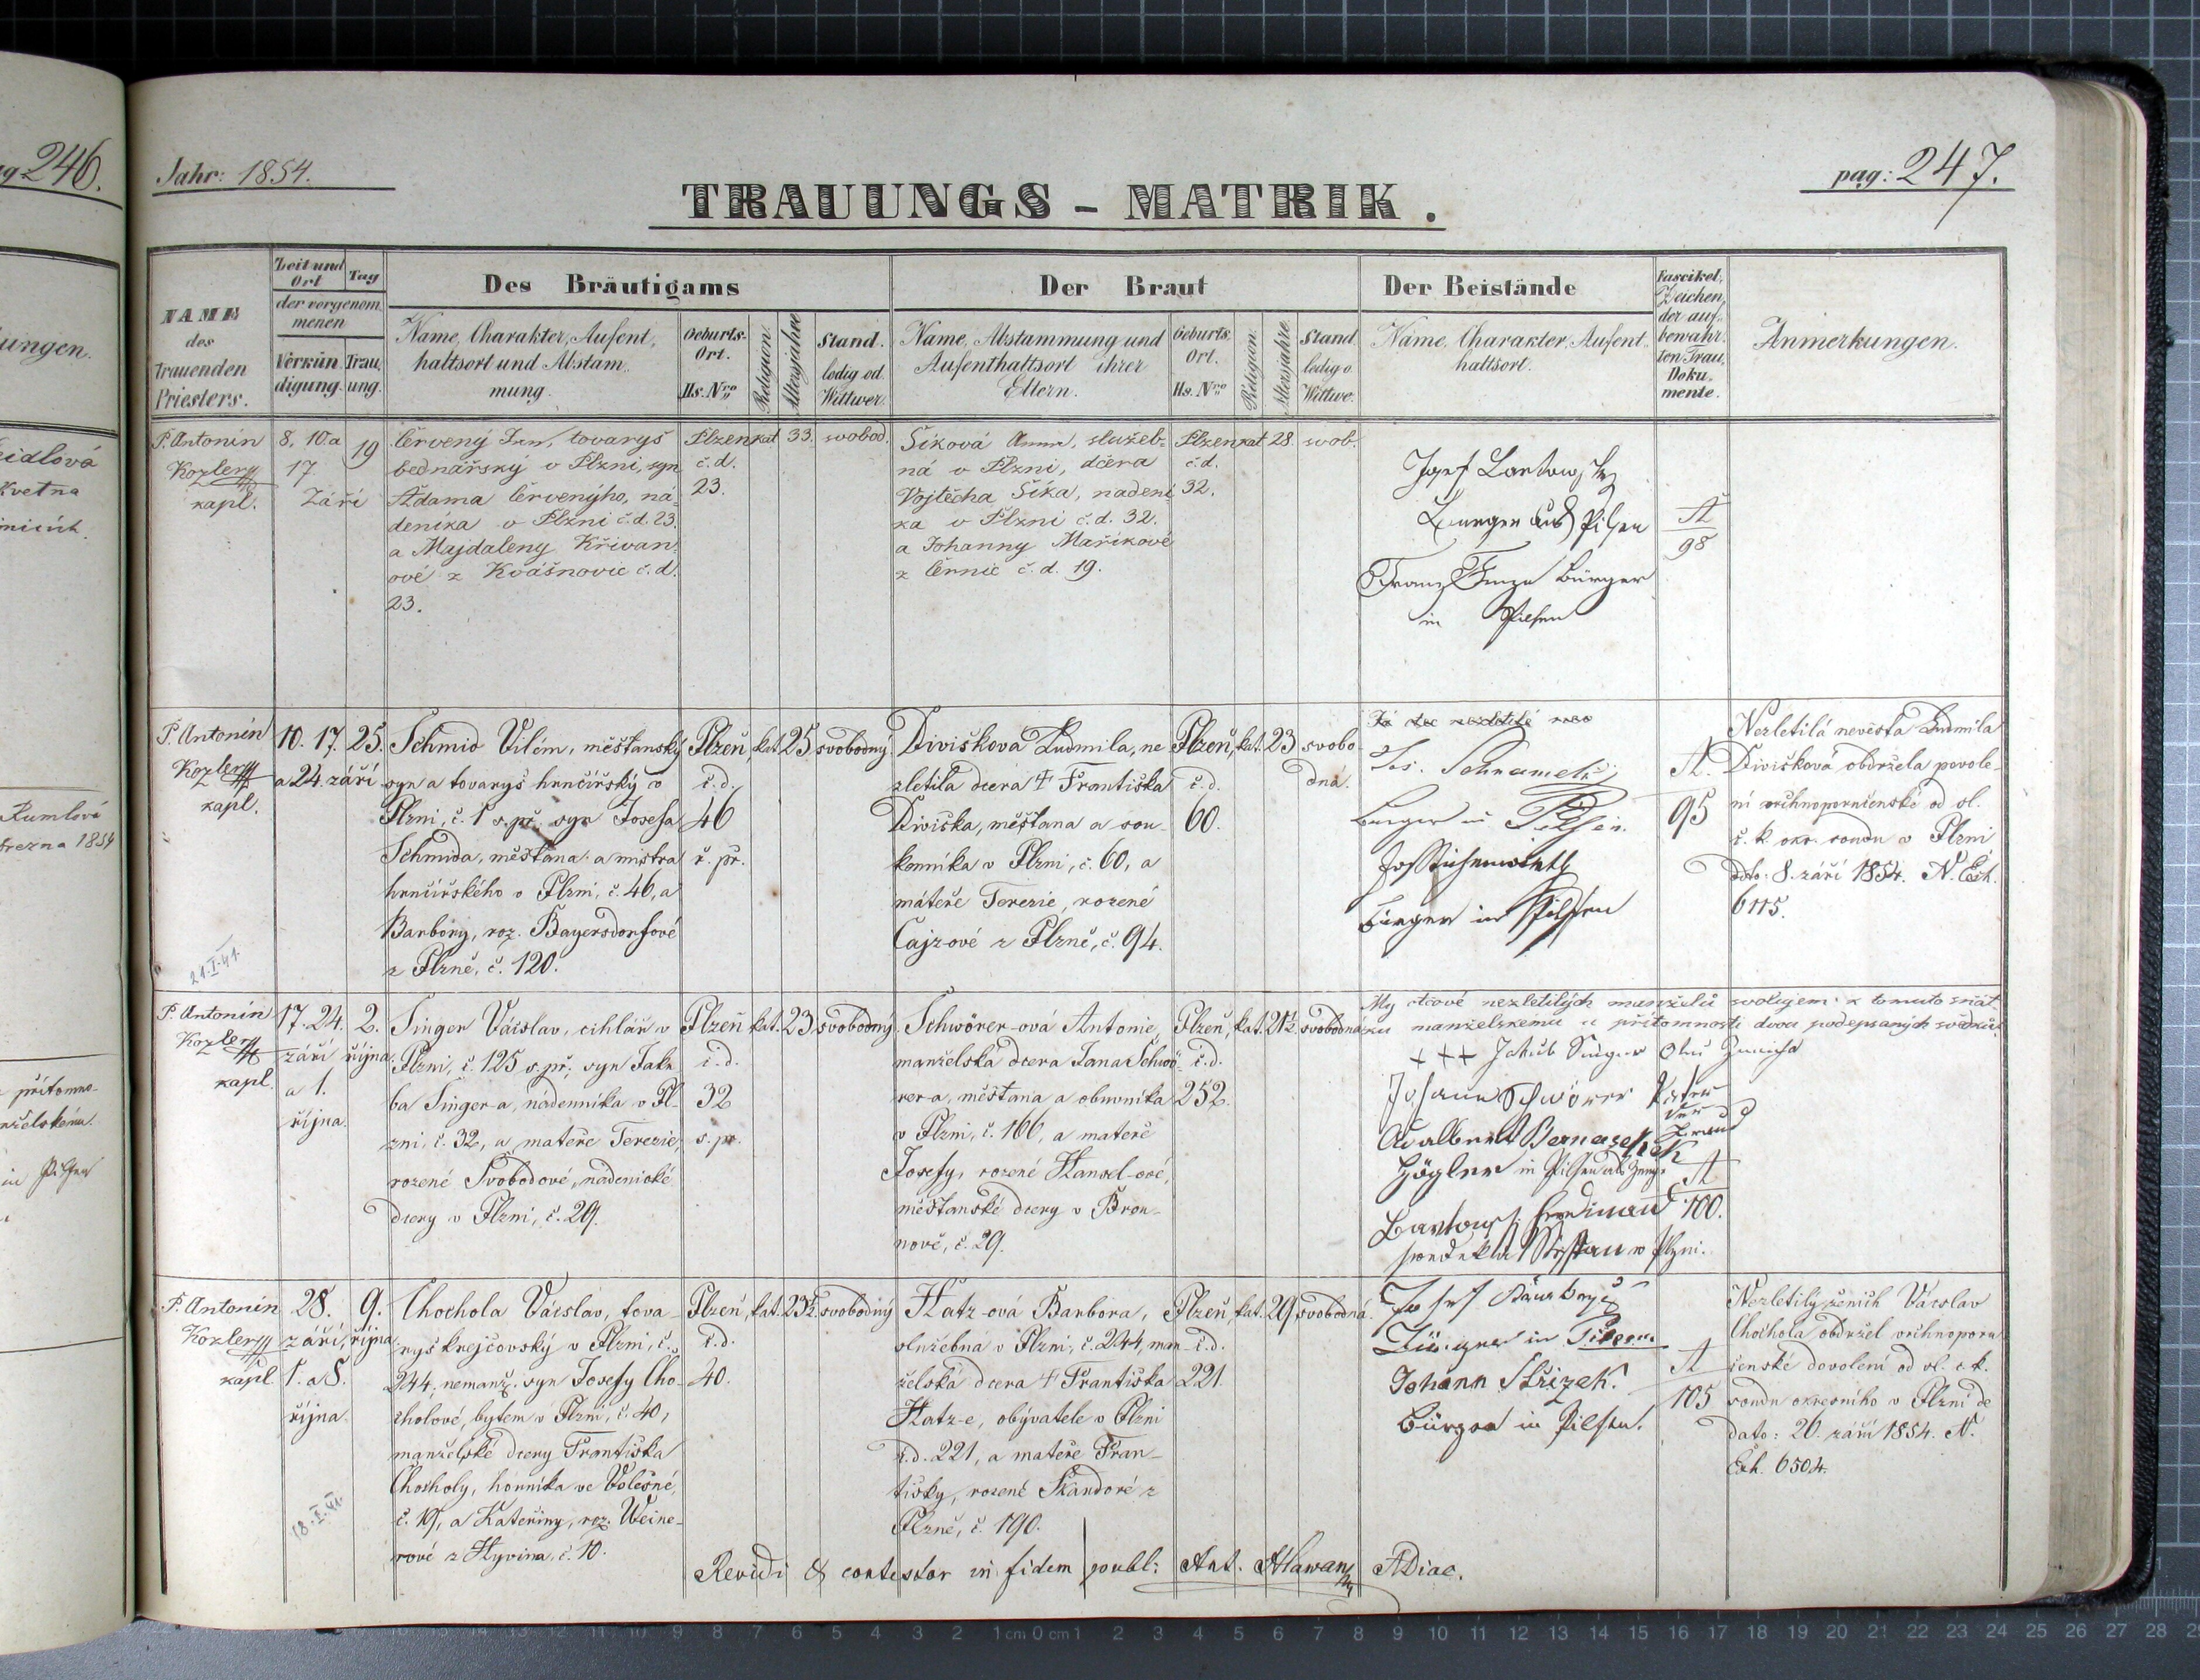 246.
Jahr: 1854.
pag: 247.
TRAUUNGS - MATRIK.
NAME
des
Trauenden
Priesters.
Zeit und
Ort
Tag
der vorgenom
menen
Verkün
digung.
Trau,
ung.
Des Bräutigams
Name, Charakter, Aufent,
haltsort und Abstam
mung.
Geburts-
Ort.
Hs. Nro
Religion.
Altersjahre
Stand.
ledig od.
Wittwer.
Der Braut
Name, Abstammung und
Aufenthaltsort ihrer
Eltern.
Geburts,
Ort.
Hs. Nro
Religion.
Altersjahre
Stand
ledig o
Wittwe.
Der Beistände
Name, Charakter, Aufent
haltsort.
Fascikel,
Zeichen,
der auf-
bewahr,
ten Trau,
Doku,
mente.
Anmerkungen.
P. Antonín
Kozler
kapl.
8, 10. a
17.
Září
19
Červený Jan, tovaryš
bednářský v Plzni, syn
Adama Červenýho, ná-
deníka v Plzni č.d. 23.
a Majdaleny Křivan-
ové z Kvášnovic č.d.
23.
Plzen
č.d.
23.
kat
33.
svobod.
Šiková Anna, služeb-
ná v Plzni, dcera
Vojtěcha Šika, nadení
ka v Plzni č.d. 32.
a Johanny Maříkové
z Černic č.d. 19.
Plzen
č.d.
32.
kat
28.
svob.
Josef
Burger aus Pilsen
Franz Bürger
in Pilsen
A
98
P. Antonín
Kozler
kapl.
10. 17.
a 24. září
25.
Schmid Vilém, měšťanský
syn a tovaryš hrnčířský v
Plzni, č. 1 s. př. syn Josefa
Schmida, měšťana a mistra
hrnčířského v Plzni, č. 46, a
Barbory, roz. Bayersdorfové
z Plzně, č. 120.
Plzeň,
č.d.
46
ř. př.
kat.
25
svobodný
Divišková Ludmila, ne
zletilá dcera † Františka
Diviška, měšťana a sou-
kenníka v Plzni, č. 60, a
mateře Terezie, rozené
Cajzové z Plzně, č. 94.
Plzeň,
č.d.
60.
kat.
23
svobo-
dná.
Burger in Pilsen.
Bürger in Pilsen
A.
95
Nezletilá nevěsta Ludmila
Divišková obdržela povole-
ní vrchnoporučenské od sl.
c. k. okr. soudu v Plzni
ddto: 8. září 1854. N. Exh.
6115.
21.I.41.
P. Antonín
Kozler
kapl.
17. 24.
září
a 1.
října.
2.
října.
Singer Václav, cihlář v
Plzni, č. 125 s. př., syn Jaku
ba Singer-a, nádenníka v Pl-
zni, č. 32, a mateře Terezie,
rozené Svobodové, nádenické
dcery v Plzni, č. 29.
Plzeň
č.d.
32
s. př.
kat.
23
svobodný
Schwörer-ová Antonie,
manželská dcera Jana Schwö-
rer-a, měšťana a obuvníka
v Plzni, č. 166, a mateře
Josefy, rozené Hansel-ové,
měšťanské dcery v Brou-
nově, č. 29.
Plzeň,
č.d.
252.
kat.
21½
svobodná
My otcové nezletilých manželů svolujem k tomuto sňat
ku manželskému u přítomnosti dvou podepsaných svědků.
+++ Jakub Singer
Johann Schwörer Vater
der Braut
Adalbert
in Pilsen als Zeuge
Ferdinand
v Plzni.
A
100.
P. Antonín
Kozler
kapl.
28.
září,
1. a 8.
října.
9.
října
Chochola Václav, tova-
ryš krejčovský v Plzni, č.
244, nemanž. syn Josefy Cho-
cholové, bytem v Plzni, č. 40,
manželské dcery Františka
Chocholy, horníka ve Volešné,
č. 19, a Kateřiny, roz. Weine-
rové z Hyvina, č. 10.
Plzeň,
č.d.
40.
kat.
23½
svobodný
Hatz-ová Barbora,
služebná v Plzni, č. 244, man-
želská dcera † Františka
Hatz-e, obývatele v Plzni
č.d. 221, a mateře Fran-
tišky, rozené Škandové z
Plzně, č. 190.
Plzeň,
č.d.
221.
kat.
29
svobodná
Josef
Bürger in Pilsen
Johann Střizek.
Bürger in Pilsen.
A
105
Nezletilý ženich Václav
Chochola obdržel vrchnoporu
čenské dovolení od sl. c. k.
soudu okresního v Plzni de
dato: 20. září 1854. N.
Exh. 6504.
18.I.41.
Revidi & contestor in fidem publ: Ant. Hlawan ADiac.